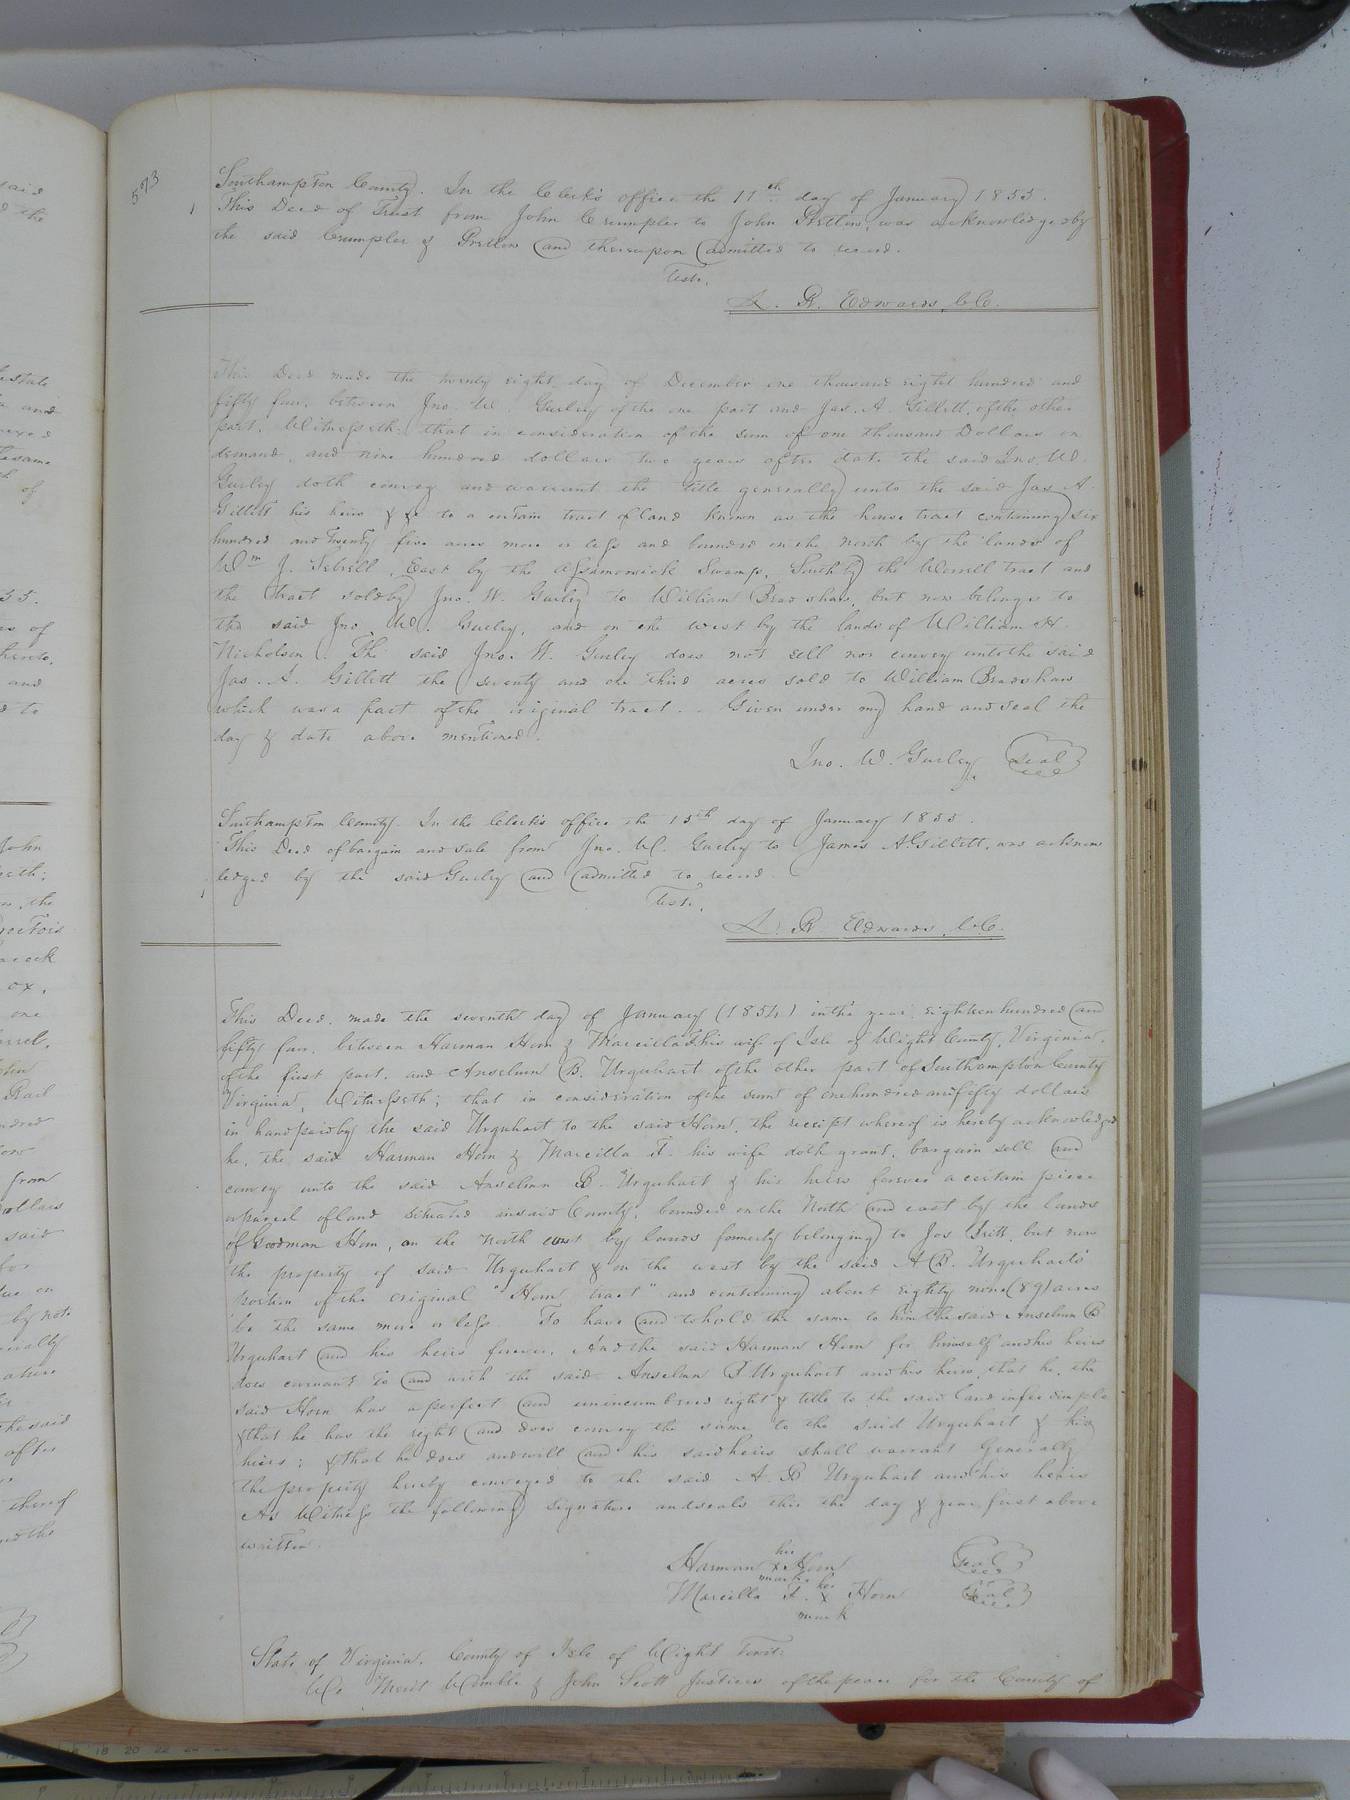 573
Southampton County. In the Clerk's office the 11th day of January 1855.
This Deed of Trust from John Crumpler to John Pretlow, was acknowledged by
the said Crumpler & Pretlow and thereupon admitted to record.
Teste,
L. R. Edwards, C.C.
This Deed made the twenty eight day of December one thousand eight hundred and
fifty four, between Jno. W. Gurley of the one part and Jas. A. Gillett, of the other
part. Witnesseth: that in consideration of the sum of one thousand Dollars on
demand, and nine hundred dollars two years after date the said Jno. W.
Gurley doth convey and warrant the title generally unto the said Jas. A.
Gillett his heirs & &c to a certain tract of land known as the house tract containing six
hundred and Twenty five acres more or less and bounded on the north by the lands of
Wm J. Sebrell, East by the Assamoosick Swamp, South by the Worrell tract and
the tract sold by Jno. W. Gurley to William Bradshaw, but now belongs to
the said Jno W. Gurley, and on the west by the lands of William H.
Nicholson. The said Jno. W. Gurley does not sell nor convey unto the said
Jas. A. Gillett the seventy and one third acres sold to William Bradshaw
which was a part of the original tract. Given under my hand and seal the
day & date above mentioned.
Jno. W. Gurley seal
Southampton County. In the Clerk's office the 15th day of January 1855.
This Deed of bargain and sale from Jno. W. Gurley to James A Gillett, was acknow
ledged by the said Gurley and admitted to record.
Teste,
L R Edwards, C.C.
This Deed, made the seventh day of January (1854) in the year, eighteen hundred and
fifty four, between Harman Horn & Marcilla his wife of Isle of Wight County, Virginia,
of the first part, and Anselmn B. Urquhart of the other part of Southampton County
Virginia, Witnesseth; that in consideration of the sum of one hundred and fifty dollars
in hand paid by the said Urquhart to the said Horn, the receipt whereof is hereby acknowledged
he, the said Harman Horn & Marcilla F. his wife doth grant, bargain sell and
convey unto the said Anselmn B. Urquhart & his heirs forever a certain piece
or parcel of land situated in said County, bounded on the North and east by the lands
of Goodman Horn, on the North east by lands formerly belonging to Jos Britt, but now
the property of said Urquhart & on the west by the said A B. Urquhart's
portion of the original "Horn tract" and containing about eighty nine (89) acres
be the same more or less. To have and to hold the same to him the said Anselmn B
Urquhart and his heirs forever. And the said Harman Horn for himself and his heirs
does covenant to and with the said Anselmn B Urquhart and his heirs, that he, the
said Horn has a perfect and unincumbered right & title to the said land in fee simple
& that he has the right and does convey the same to the said Urquhart & his
heirs; & that he does and will and his said heirs shall warrant Generally
the property hereby conveyed to the said A. B Urquhart and his heirs
As Witness the following signatures and seals this the day & year first above
written.
his
Harman x Horn Seal
mark her
Marcilla F. x Horn Seal
mark
State of Virginia. County of Isle of Wight Towit:
We Merit Womble & John Scott Justices of the peace for the County of